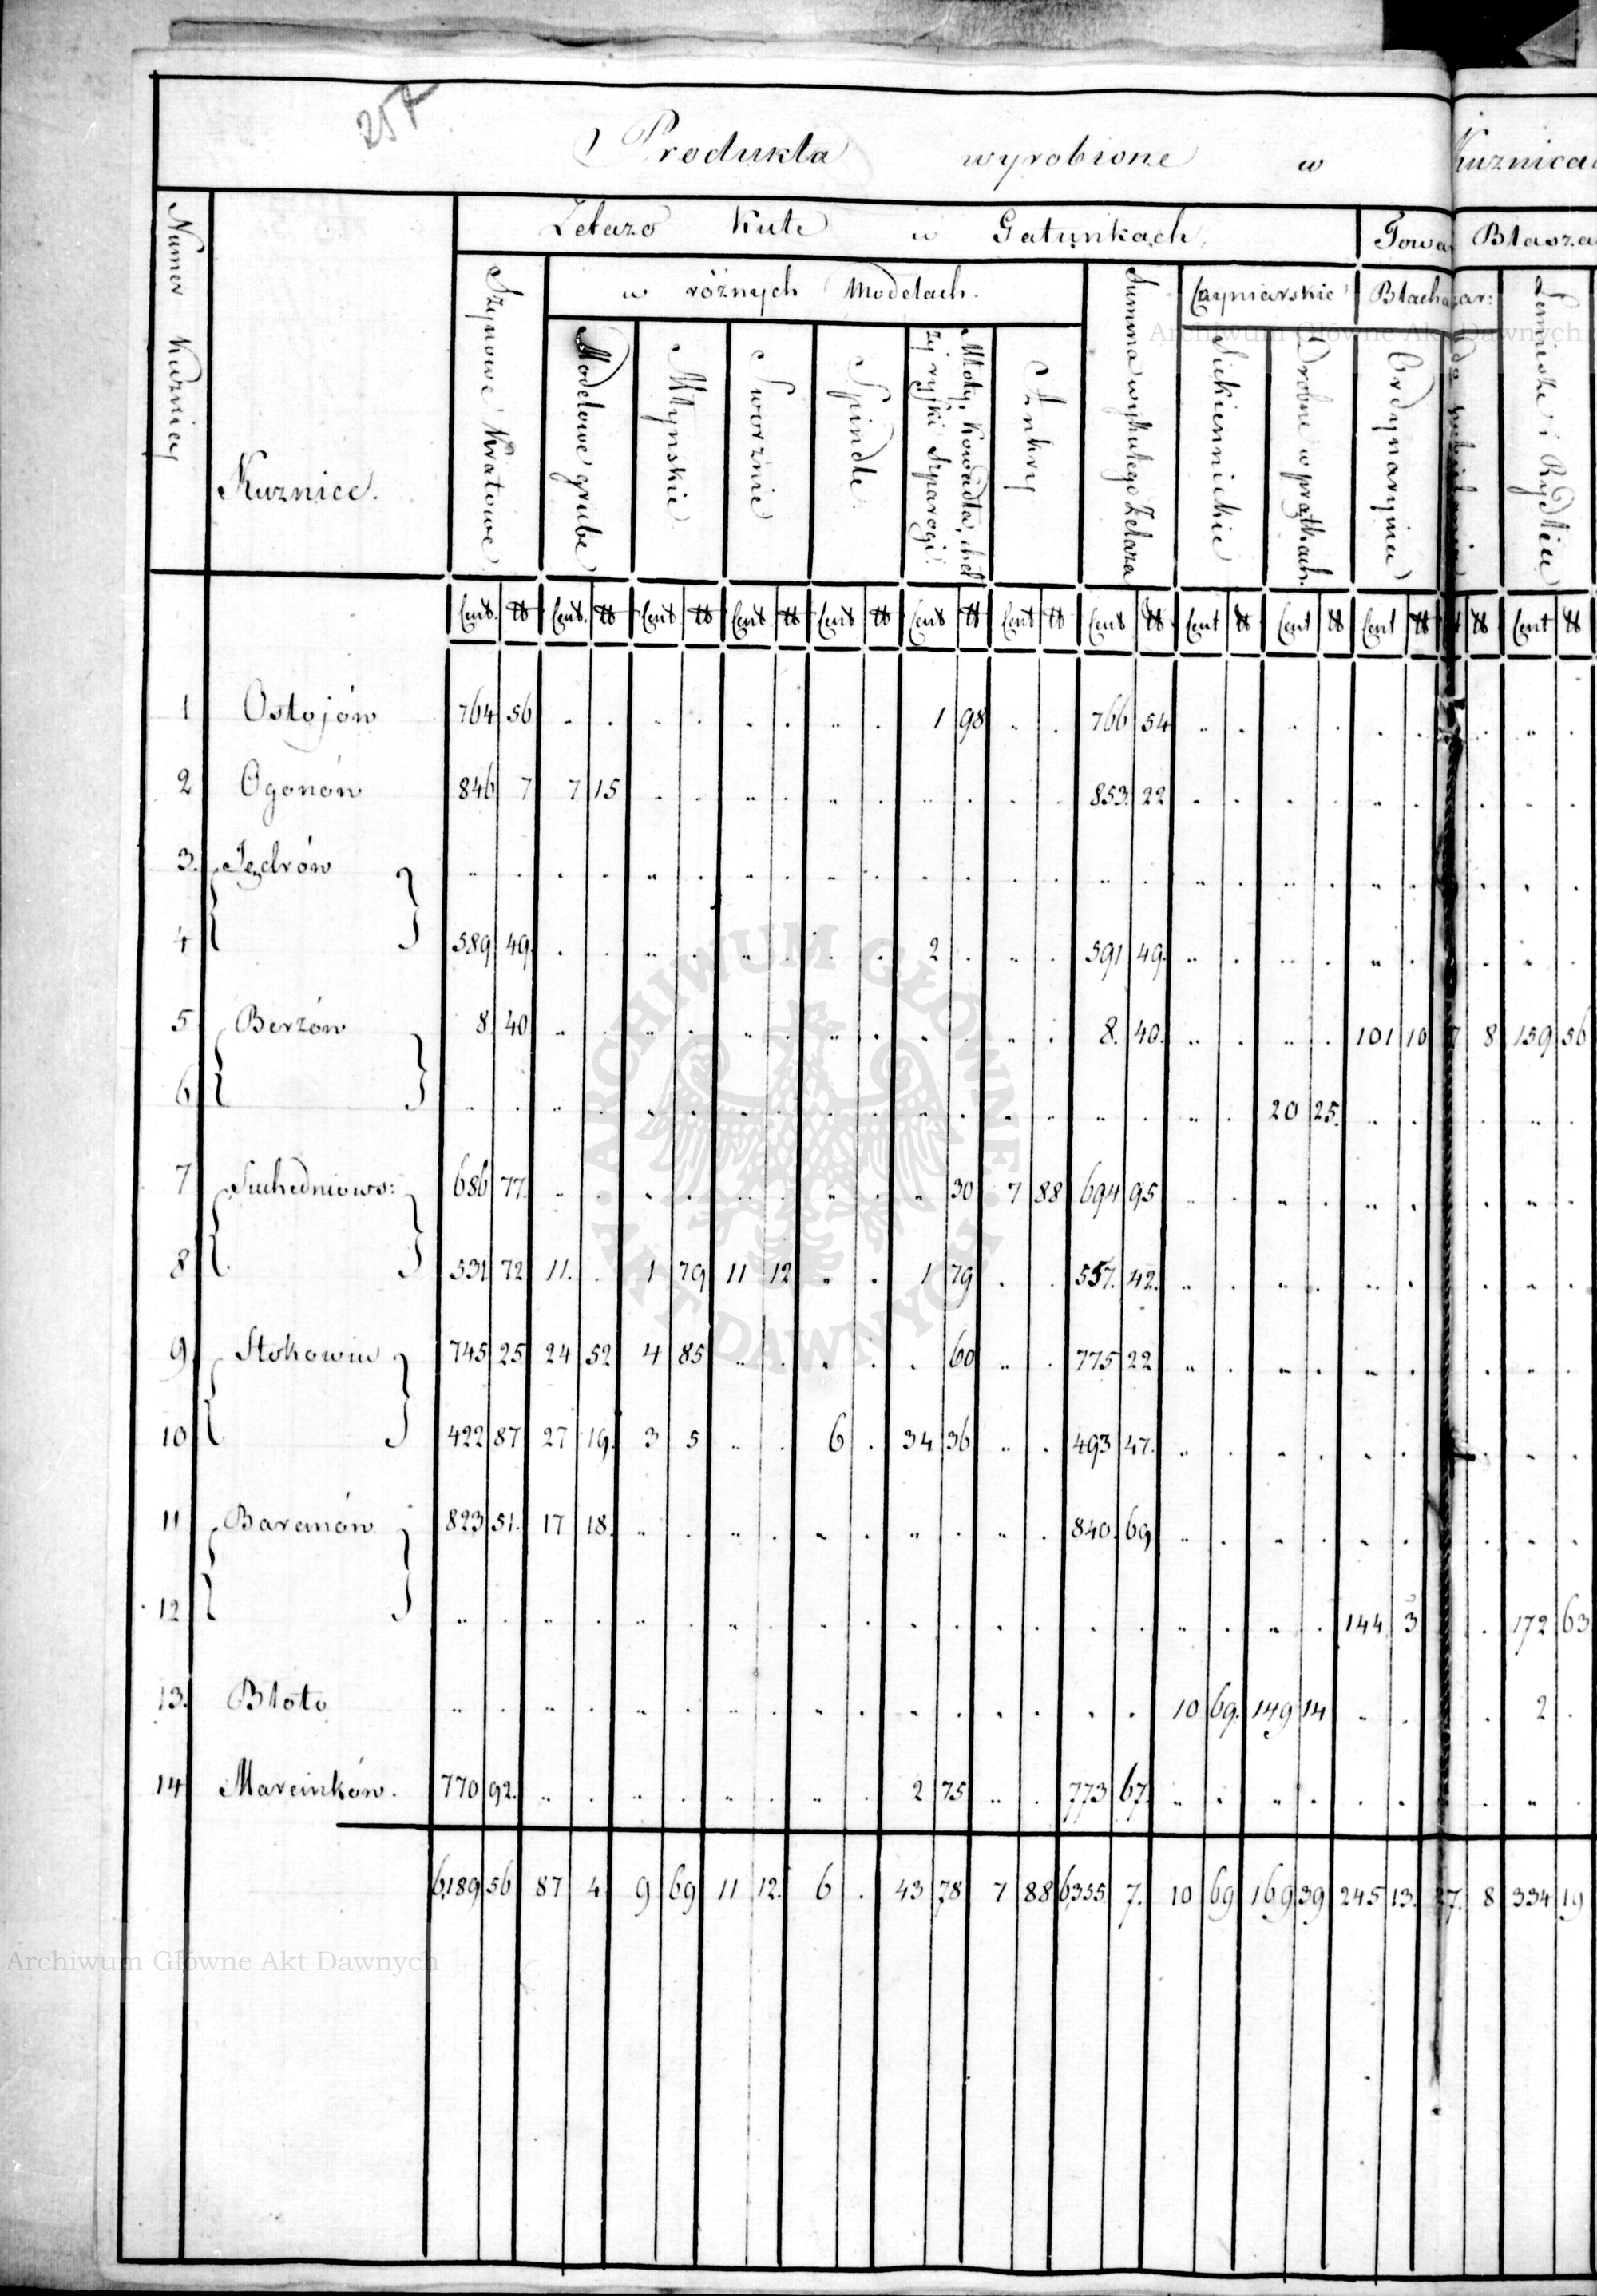 257
Produkta wyrobione w Kuznica
Numer Kuznicy
Kuznice.
Zelazo Kute w Gatunkach.
Towa Blasza
Szynowe Kratowe
w różnych Modelach.
Modelowe grube
Młynskie
Sworznie
Spindle
Młoty, Kowadła,
Szparogi
Ankry
Summa wykutego Zelaza
Cayniarskie
Sukiennickie
Drobne w prątkach.
Blachar:
Ordynaryine
Lemiesze i Rydle
Cent. ℔ Cent. ℔ Cent ℔ Cent ℔ Cent ℔ Cent ℔ Cent ℔ Cent ℔ Cent ℔ Cent ℔ Cent ℔ ℔ Cent ℔
1 Ostojów 764 56 1 98 766 54
2 Ogonów 846 7 7 15 853. 22
3. Jędrów
4 589 49. 2 591 49.
5 Berzów 8. 40 8. 40. 101 10 7 8 159 56
6 20 25.
7 Suchedniows: 686 77. 30 7 88 694 95
8 531 72 11. 1 79 11 12 1 79 557. 42.
9 Stokowiec 745 25 24 52 4 85 60 775 22
10 422 87 27 19. 3 5 6 . 34 36 493 47.
11 Baranów 823 51. 17 18. 840. 69
12 144 3 172 63
13. Błoto 10 69. 149 14 2 .
14 Marcinków. 770 92. 2 75 773 67.
6189 56 87 4 9 69 11 12. 6 . 43 78 7 88 6355 7. 10 69 169 39 245 13. 27. 8 334 19
Archiwum Główne Akt Dawnych
Archiwum Główne Akt Dawnych
ARCHIWUM GŁÓWNE AKT DAWNYCH